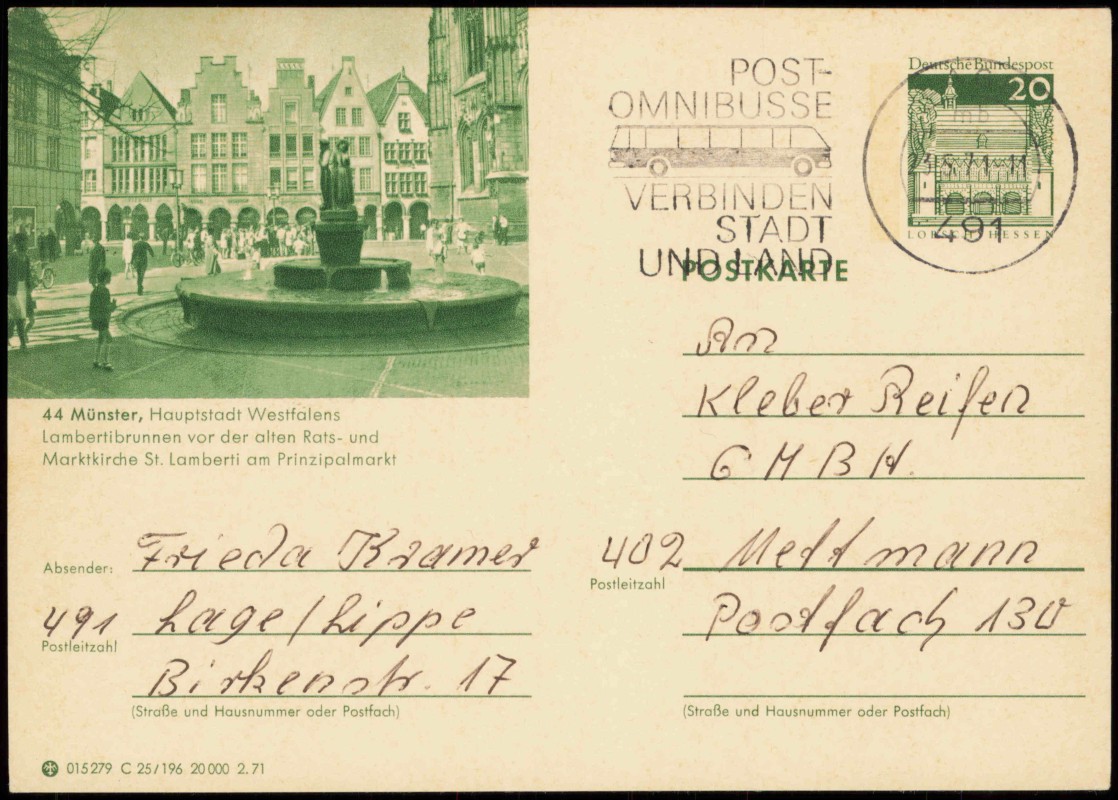 POST-
OMNIBUSSE
VERBINDEN
STADT
UND LAND
Deutsche Bundespost
20
mb
491
LORSCH/HESSEN
POSTKARTE
44 Münster, Hauptstadt Westfalens
Lambertibrunnen vor der alten Rats- und
Marktkirche St. Lamberti am Prinzipalmarkt
An
Kleber Reifen
GMBH.
402 Mettmann
Postleitzahl
Postfach 130
(Straße und Hausnummer oder Postfach)
Absender: Frieda Kramer
491 Lage/Lippe
Postleitzahl
Birkenstr. 17
(Straße und Hausnummer oder Postfach)
015279 C 25/196 20000 2.71